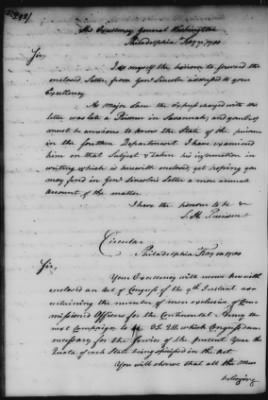 His Excellency General Washington
Philadelphia Feby
Sir,
I do myself the honor to forward the
enclosed Letter from Genl Lincoln addressed to your
Excellency
As Major Lane the
letter was late a Prisoner in Savannah, and
must be anxious to know the State of the prisoners
in the Southern Department I have examined
him on that Subject & taken his information in
writing which is herewith enclosed, yet hoping you
may find in Genl Lincoln's Letter a more
account of the matter
I have the honor to be &
S. H.
Circular
Philadelphia Feby 10 1780
Sir,
Your Excellency will receive herewith
enclosed an Act of Congress of the 9th Instant
the number of men exclusive of Com-
missioned Officers for the Continental Army the
next Campaign to be 35,211 which Congress deem
necessary for the Service of the present Year the
Quota of each State being specified in the Act
You will observe that all the Men